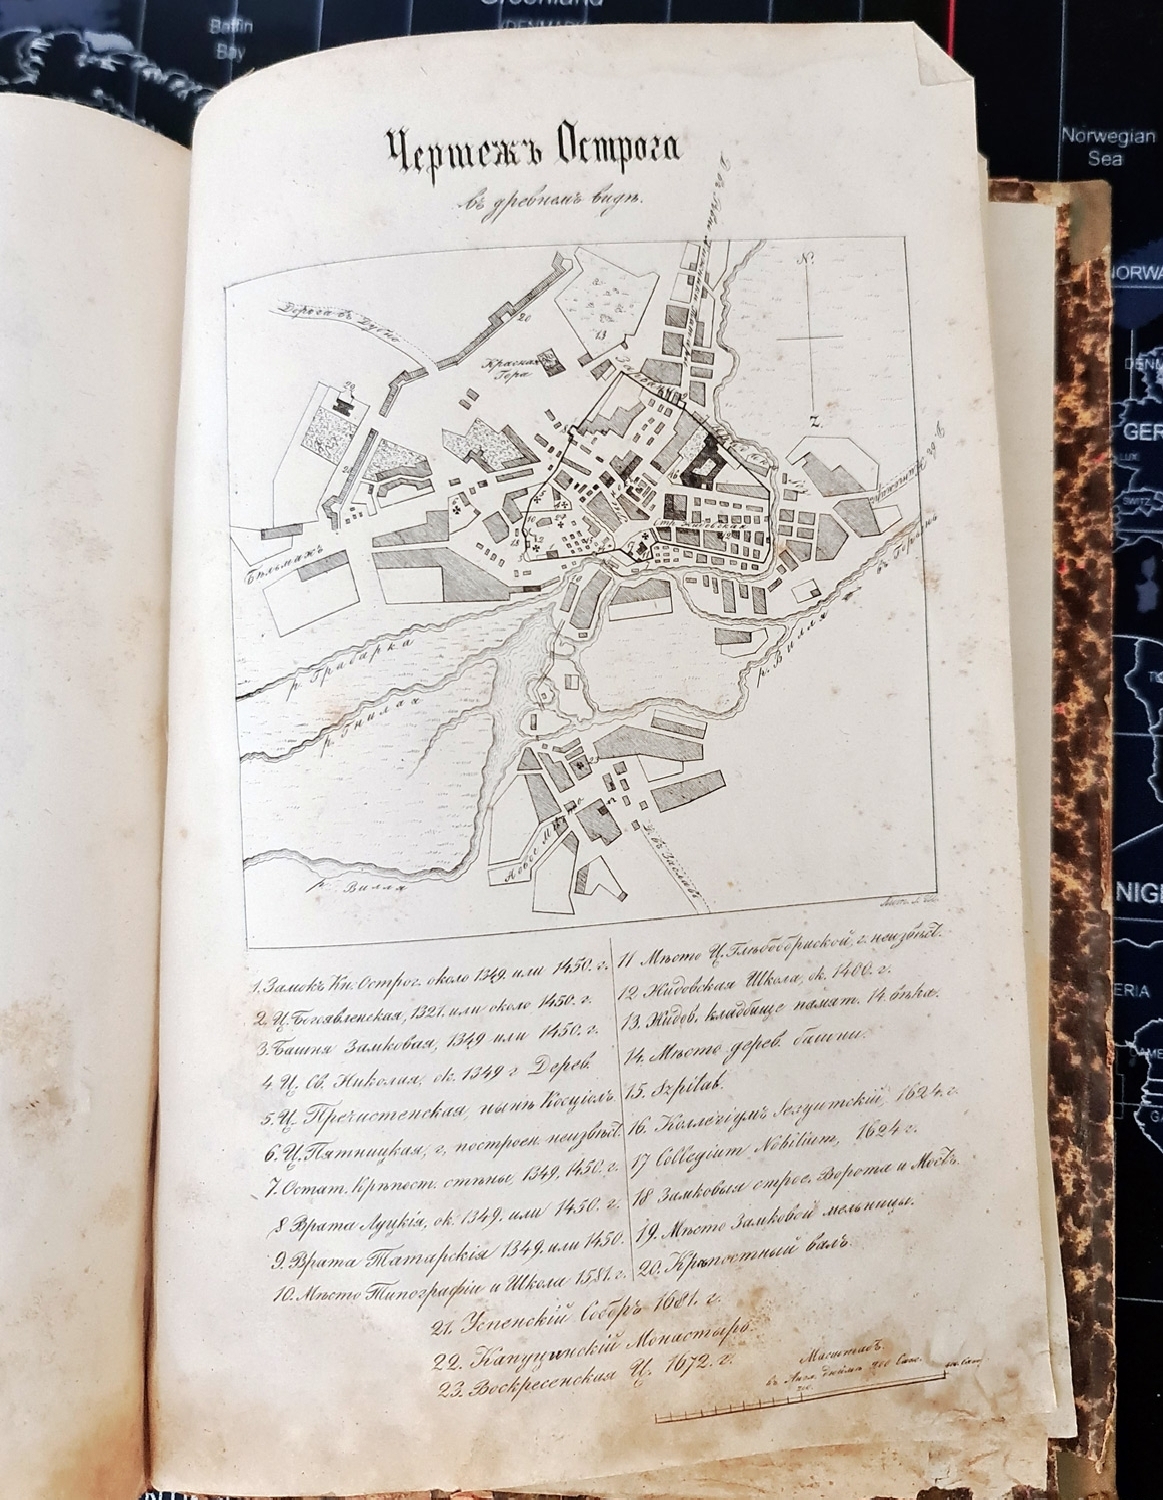 Greenland
(DENMARK)
Baffin
Bay
Norwegian
Sea
NORWA
DENM
GER
LUX
SWITZ
NIGE
ERIA
CAME
GA
Чертежъ Острога
въ древнемъ видѣ.
Дорога въ Дубно
N.
Z.
20
13
Красная
Гора
Зарванье
20
Бѣльмажъ
р. Грабарка
р. Гнилая
р. Вилля
р. Вилля
въ Горынь
Новое М
Д. въ Заславъ
1. Замокъ Кн. Острог. около 1349. или 1450. г.
2. Ц. Богоявленская, 1321. или около 1450. г.
3. Башня Замковая, 1349 или 1450. г.
4. Ц. Св. Николая, ок. 1349 г Дерев.
5. Ц. Пречистенская, нынѣ Косціолъ
6. Ц. Пятницкая, г, построен. неизвѣст.
7. Остат. Крѣпост. стѣны, 1349, 1450. г.
8 Врата Луцкія, ок. 1349. или 1450. г.
9. Врата Татарскія 1349. или 1450.
10. Мѣсто Типографіи и Школы 1581. г.
11 Мѣсто Ц. г. неизвѣст.
12 Жидовская Школа, ок. 1400. г.
13. Жидов. кладбище памят. 14. вѣка.
14. Мѣсто дерев. башни.
15. Szpital.
16. Коллегіумъ Іезуитскій, 1624. г.
17 Collegium Nobilium, 1624 г.
18. Замковыя строе. Ворота и Мостъ.
19. Мѣсто Замковой мельницы.
20. Крѣпостный валъ.
21. Успенскій Соборъ 1681. г.
22. Капуцинскій Монастырь.
23. Воскресенская Ц. 1672. г.
Масштабъ
въ Англ. дюймѣ 200 Саж.